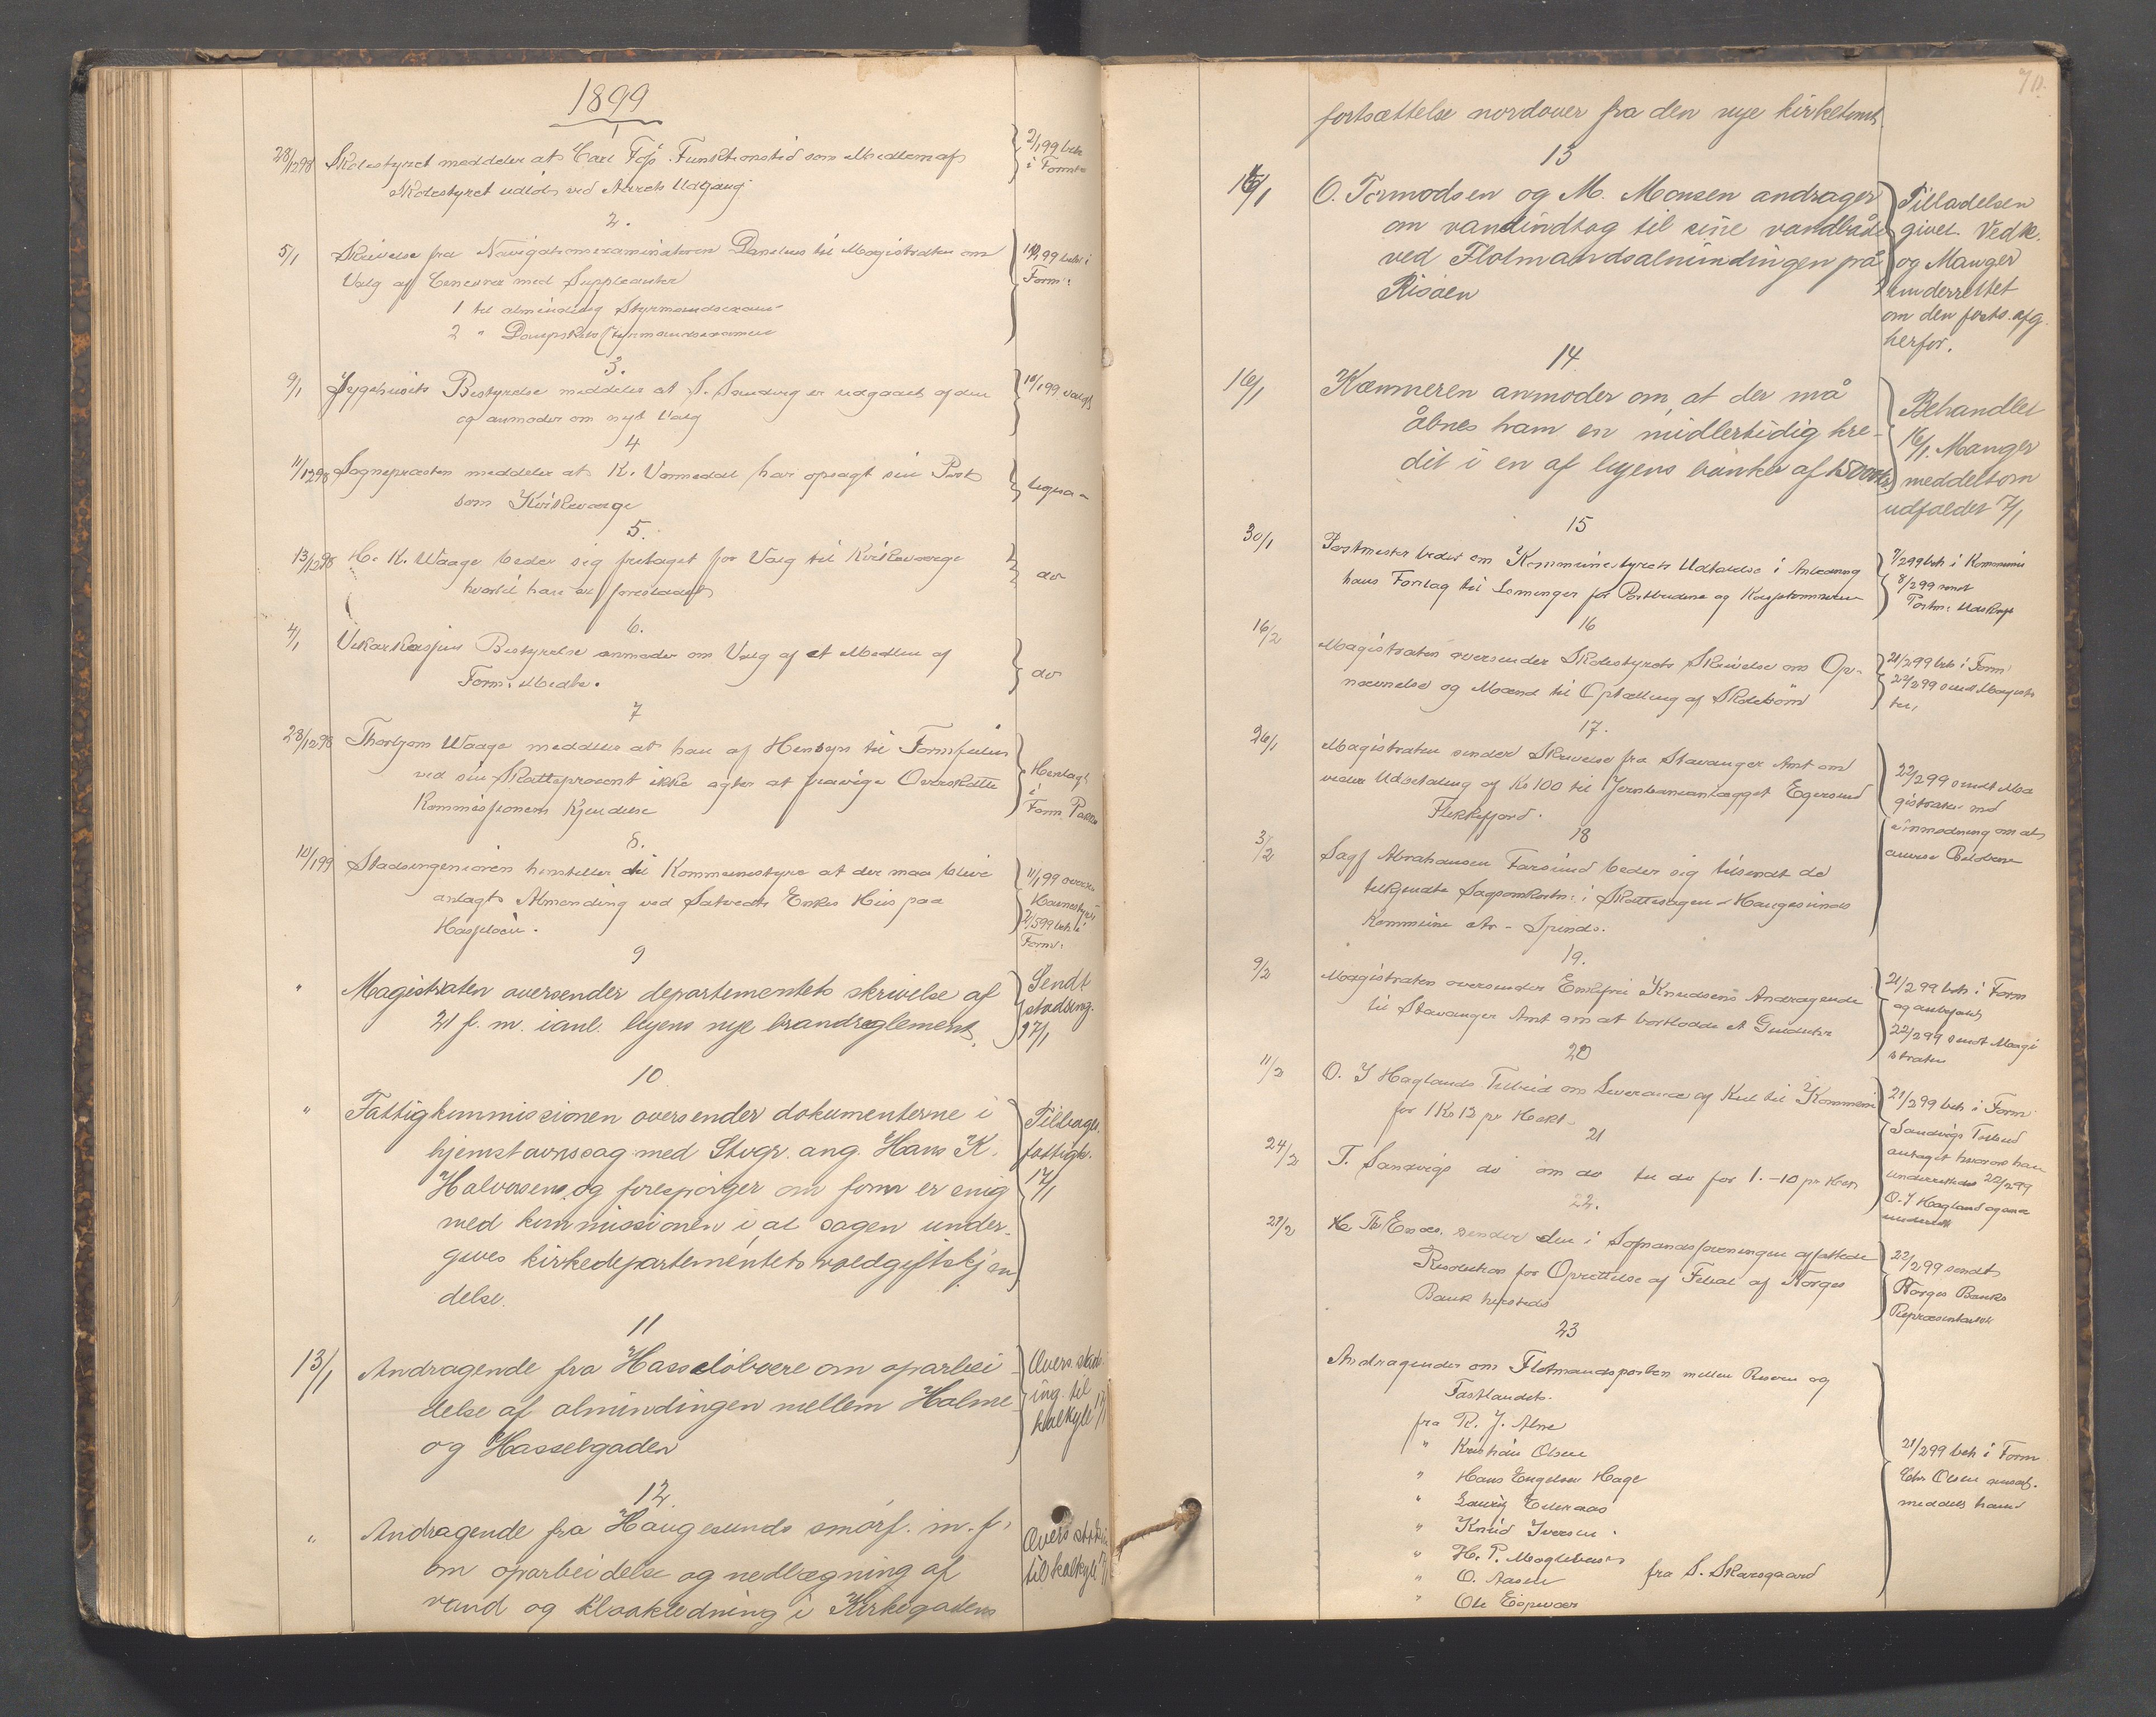 1899
1
28/12 98 Skolestyret meddeler at Carl Funktionstid som Medlem af
Skolestyret udløb ved Aarets Udgang
2/1 99 beh
i Form
2.
5/1 Skrivelse fra Navigationsexaminatoren til Magistraten om
Valg af Censorer med Suppleanter
1 til almindelig Styrmandsexam
2 " Dampskibs Styrmandsexamen
99 beh i
Form:
3.
9/1 Sygehusets Bestyrelse meddeler at S. Sandvig er udgaaet af den
og anmoder om nyt Valg
10/1 99 valgt
4
11/12 98 Sognepræsten meddeler at K. Vormedal har opsagt sin Post
som Kirkeværge
5.
13/12 98 H. K. Waage beder sig fritaget for Valg til Kirkeværge
hvortil han er foreslaaet
do
6.
4/1 Vekarkassens Bestyrelse anmoder om Valg af et Medlem af
Form: Medl.
do
7
28/12 98 Thorbjørn Waage meddeler at han af Hensyn til
ved sin Skatteprocent ikke agter at fravige Overskatte
Kommissionens Kjendelse
Henlagt
i
Form. Pakke
8.
10/1 99 Stadsingeniøren henstiller til Kommunestyre at der maa blive
anlagt Almending ved Enkes Hus paa
Hasseløen.
11/1 99
Havnestyre
99 beh i
Form:
9
" Magistraten oversender departementets skrivelse af
21 f. m. i anl. byens nye brandreglement.
Sendt
stadsing.
17/1
10
" Fattigkommissionen oversender dokumenterne i
hjemstavnssag med Stvgr. ang. Hans K.
Halvorsen, og forespørger om form er enig
med kommissionen i, at sagen under-
gives kirkedepartementets voldgiftskjen
delse.
Tilbage
fattigk.
17/1
11
13/1 Andragende fra Hasseløboere om oparbei
delse af almindingen mellem Halme
og Hasselgaden
Overs. stad
ing. til
kalkyle 17/1
12.
" Andragende fra Haugesunds smørf. m. fl.
om oparbeidelse og nedlægning af
vand og kloakledning i Kirkegadens
Overs stads
til kalkyle 17/1
70.
fortsættelse nordover fra den nye kirketomt.
13
16/1 O. Tormodsen og M. Monsen andrager
om vandindtag til sine vandbåde
ved Flotmandsalmindingen på
Risøen
Tilladelsen
givet. Vedk.
og Manger
underrettet
om den forts. afg.
herfor.
14
16/1 Kæmneren anmoder om, at der må
åbnes ham en midlertidig kre-
dit i en af byens banker af 15000 kr.
Behandlet
16/1. Manger
meddelt om
udfaldet 17/1
15
30/1 Postmester beder om Kommunestyrets Udtalelse i Anledning
hans Forslag til Lønninger for Postbudene og
7/2 99 beh i Kommune
8/2 99 sendt
Postm: Udskrift
16
16/2 Magistraten oversender Skolestyrets Skrivelse om Op-
nævnelse og Mænd til Optælling af Skolebørn
21/2 99 beh i Form
22/2 99 sendt Magistra
ten,
17.
26/1 Magistraten sender Skrivelse fra Stavanger Amt om
videre Udbetaling af Kr 100 til Jernbaneanlægget Egersund
Flekkefjord.
22/2 99 sendt Ma
gistraten med
anmodning om at
anvise Beløbene
18
3/2 Sagf Abrahamsen Farsund beder sig tilsendt de
tilkjendte Sagsomkostn: i Skattesagen Haugesunds
Kommune ctr. Spinds.
19.
9/2 Magistraten oversender Enkefru Knudsens Andragende
til Stavanger Amt om at bortlodde et Guldur
21/2 99 beh i Form
og anbefalet
22/2 99 sendt Magi
straten
20
11/2 O. J Haglands Tilbud om Leverance af Kul til Kommunen
for 1 Kr 12 pr Hekt.
21/2 99 beh i Form
Sandvigs Tilbud
antaget hvorom han
underrettedes 22/2 99
O. J Hagland ogsaa
underrett
21
24/2 T. Sandvigs do om do til do for 1.-10 pr Hek
22.
21/2 sender den i Sømandsforeningen affattede
Resolution for Oprettelse af Filial af Norges
Bank hersteds
22/2 99 sendt
Norges Banks
Repræsentantsk
23
Andragender om Flotmandsposten mellem Risøen og
Fastlandet.
fra R. J. Alne
" Kristian Olsen
" Hans Engelsen Hage
" Lauritz
" Knud Iversen
" H. P.
" O. Aasen fra S. Skarsgaard
" Ole Espevær
21/2 99 beh i Form
Chr Olsen ansat.
meddelt ham